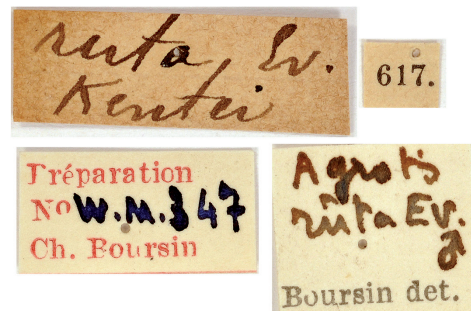 ruta, Ev.
Kentei
617.
Préparation
No W.M.347
Ch. Boursin
Agrotis
ruta Ev.
♂
Boursin det.